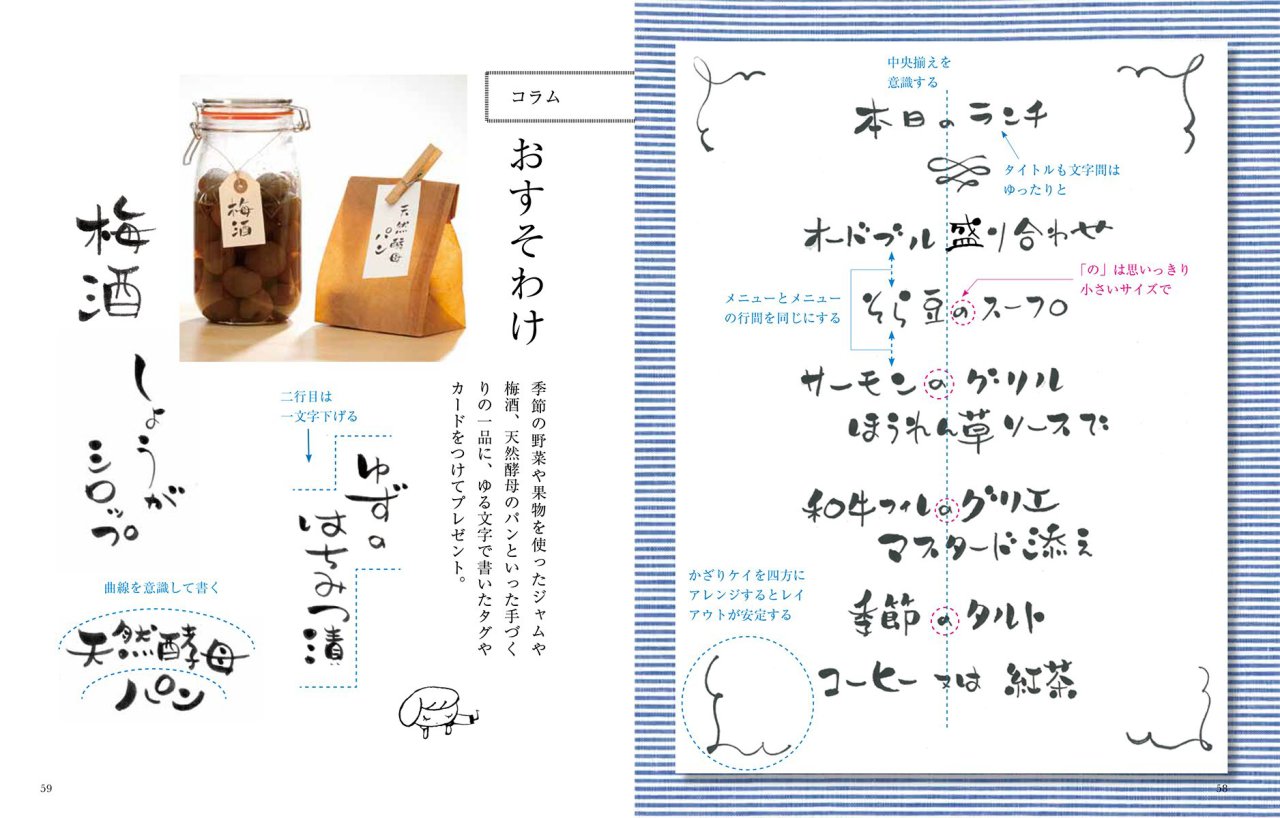 中央揃えを
意識する
本日のランチ
タイトルも文字間は
ゆったりと
オードブル盛り合わせ
「の」は思いっきり
小さいサイズで
メニューとメニュー
の行間を同じにする
そら豆のスープ
サーモンのグリル
ほうれん草ソースで
和牛フィレのグリエ
マスタード添え
かざりケイを四方に
アレンジするとレイ
アウトが安定する
季節のタルト
コーヒー又は紅茶
58
コラム
おすそわけ
季節の野菜や果物を使ったジャムや
梅酒、天然酵母のパンといった手づく
りの一品に、ゆる文字で書いたタグや
カードをつけてプレゼント。
梅酒
天然酵母
パン
二行目は
一文字下げる
ゆずの
はちみつ漬
梅酒
しょうが
シロップ
曲線を意識して書く
天然酵母
パン
59